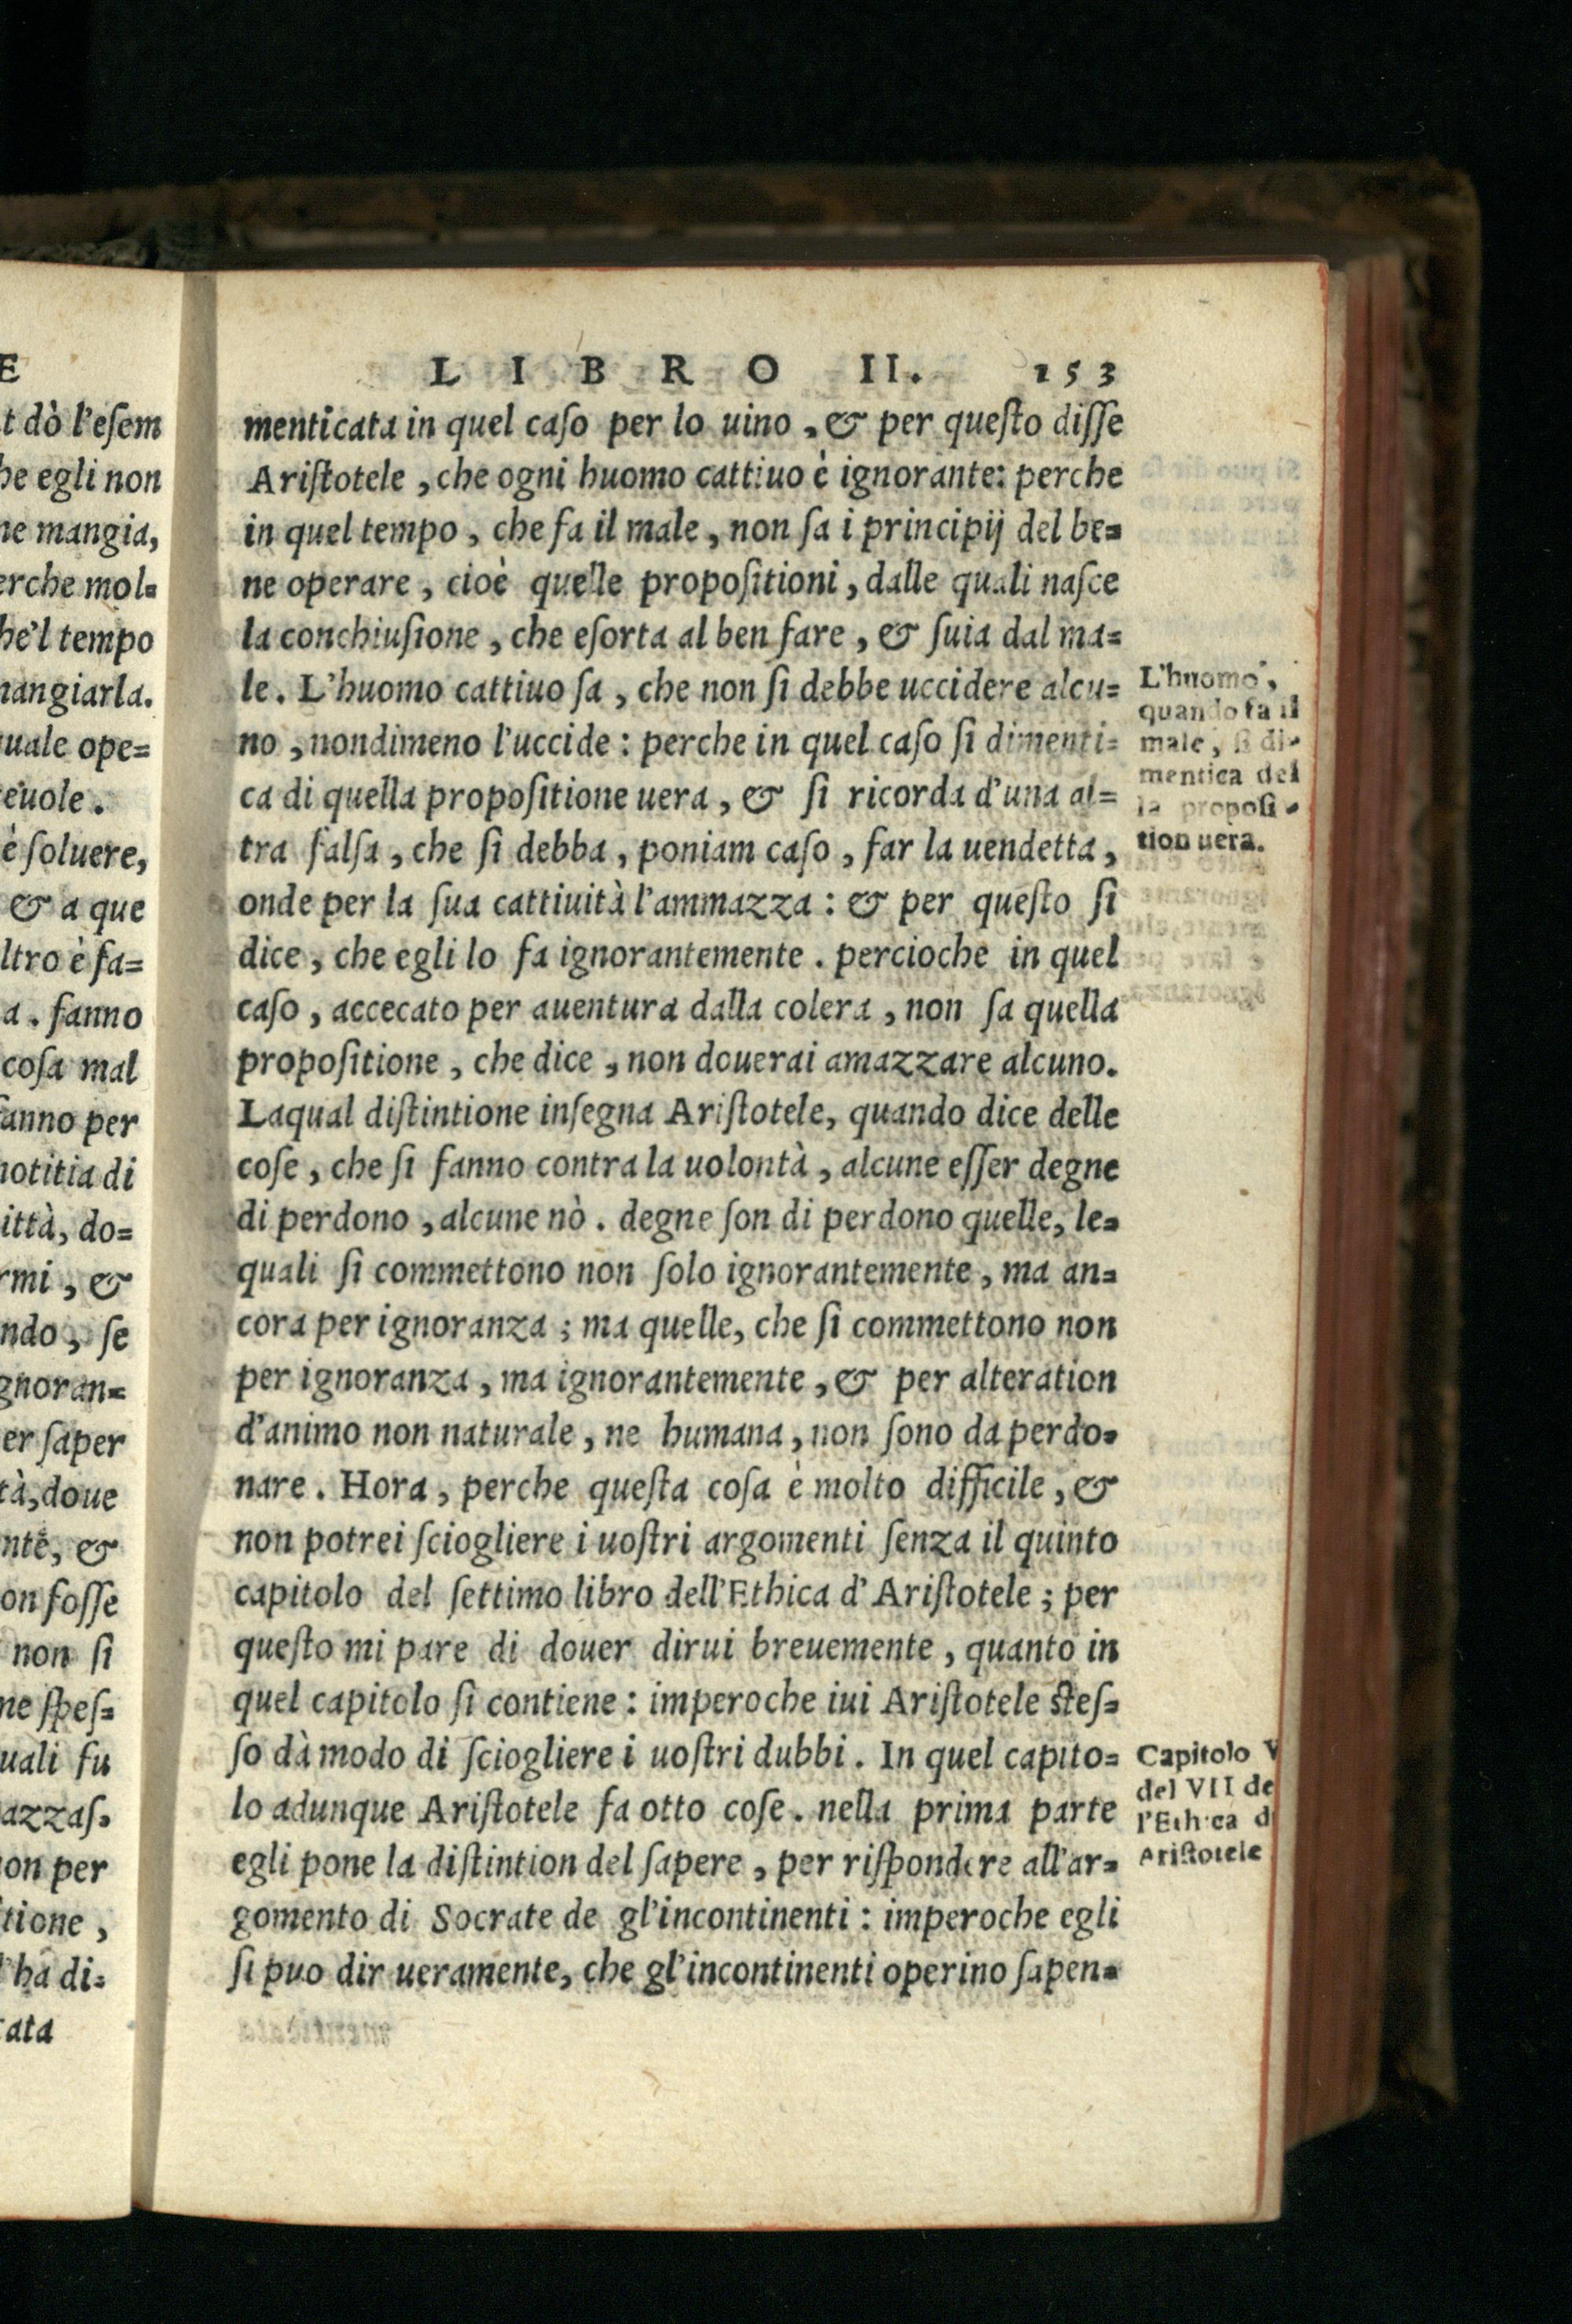 E
t dò l'eſem
he egli non
ne mangia,
erche mol=
he'l tempo
nangiarla.
uale ope=
euole.
è ſoluere,
& a que
ltro è fa=
a. fanno
coſa mal
fanno per
notitia di
ittà, do=
rmi, &
ndo, ſe
gnoran=
er ſaper
tà, doue
nte, &
on foſſe
non ſi
ne ſpeſ=
uali fu
azzaſ=
on per
tione,
l'ha di=
cata
LIBRO II. 153
menticata in quel caſo per lo uino, & per queſto diſſe
Ariſtotele, che ogni huomo cattiuo è ignorante: perche
in quel tempo, che fa il male, non ſa i principij del be=
ne operare, cioè quelle propoſitioni, dalle quali naſce
la conchiuſione, che eſorta al ben fare, & ſuia dal ma=
le. L'huomo cattiuo ſa, che non ſi debbe uccidere alcu=
no, nondimeno l'uccide: perche in quel caſo ſi dimenti=
ca di quella propoſitione uera, & ſi ricorda d'una al=
tra falſa, che ſi debba, poniam caſo, far la uendetta,
onde per la ſua cattiuità l'ammazza: & per queſto ſi
dice, che egli lo fa ignorantemente. percioche in quel
caſo, accecato per auentura dalla colera, non ſa quella
propoſitione, che dice, non douerai amazzare alcuno.
Laqual diſtintione inſegna Ariſtotele, quando dice delle
coſe, che ſi fanno contra la uolontà, alcune eſſer degne
di perdono, alcune nò. degne ſon di perdono quelle, le=
quali ſi commettono non ſolo ignorantemente, ma an=
cora per ignoranza; ma quelle, che ſi commettono non
per ignoranza, ma ignorantemente, & per alteration
d'animo non naturale, ne humana, non ſono da perdo=
nare. Hora, perche queſta coſa è molto difficile, &
non potrei ſciogliere i uoſtri argomenti ſenza il quinto
capitolo del ſettimo libro dell'Ethica d'Ariſtotele; per
queſto mi pare di douer dirui breuemente, quanto in
quel capitolo ſi contiene: imperoche iui Ariſtotele steſ=
ſo dà modo di ſciogliere i uoſtri dubbi. In quel capito=
lo adunque Ariſtotele fa otto coſe. nella prima parte
egli pone la diſtintion del ſapere, per riſpondere all'ar=
gomento di Socrate de gl'incontinenti: imperoche egli
ſi puo dir ueramente, che gl'incontinenti operino ſapen=
L'huomo,
quando fa il
male, ſi di=
mentica del
la propoſi=
tion uera.
Capitolo V
del VII de
l'Ethica d
Ariſtotele